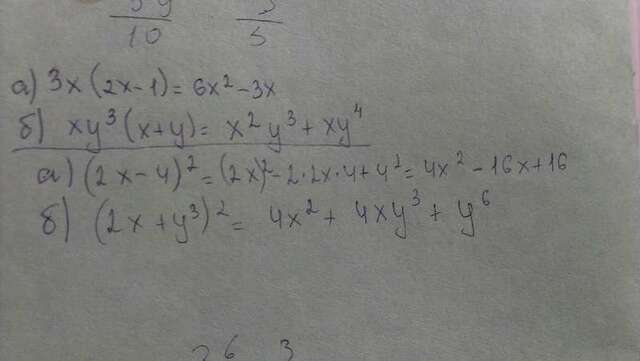 10 5
а) 3x(2x-1)=6x²-3x
б) xy³(x+y)=x²y³+xy⁴
а) (2x-4)²=(2x)²-2·2x·4+4²=4x²-16x+16
б) (2x+y³)²=4x²+4xy³+y⁶